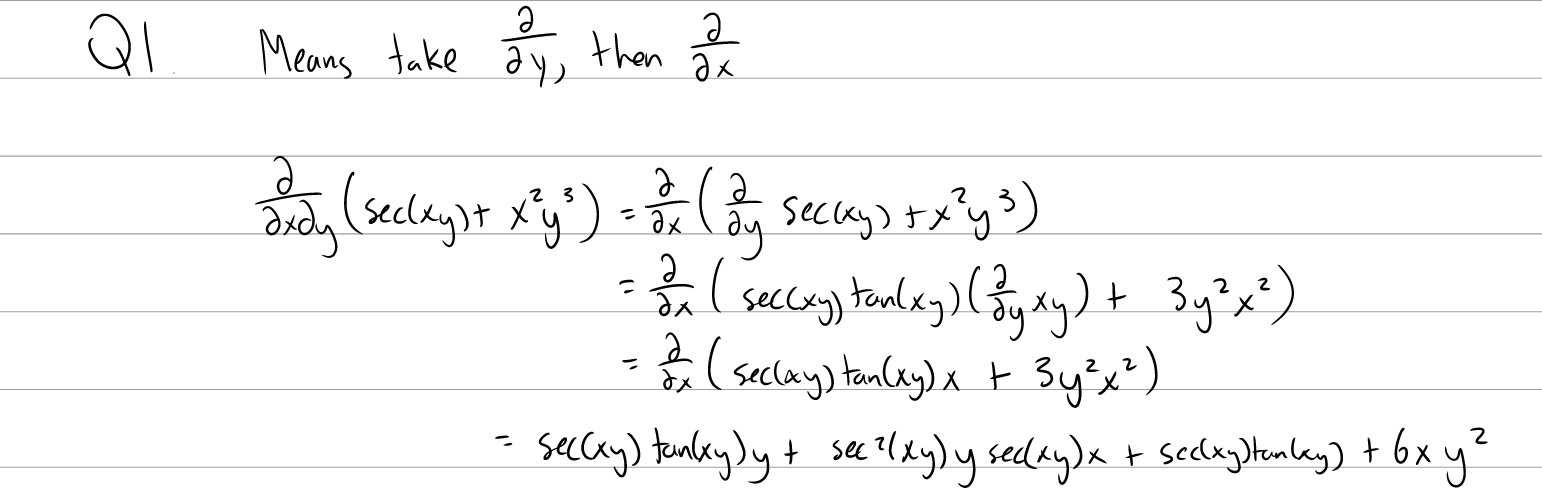 Q1. Means take ∂/∂y, then ∂/∂x
∂/∂x∂y (sec(xy) + x²y³) = ∂/∂x (∂/∂y sec(xy) + x²y³)
= ∂/∂x (sec(xy) tan(xy) (∂/∂y xy) + 3y²x²)
= ∂/∂x (sec(xy) tan(xy) x + 3y²x²)
= sec(xy) tan(xy) y + sec²(xy) y sec(xy) x + sec(xy) tan(xy) + 6xy²